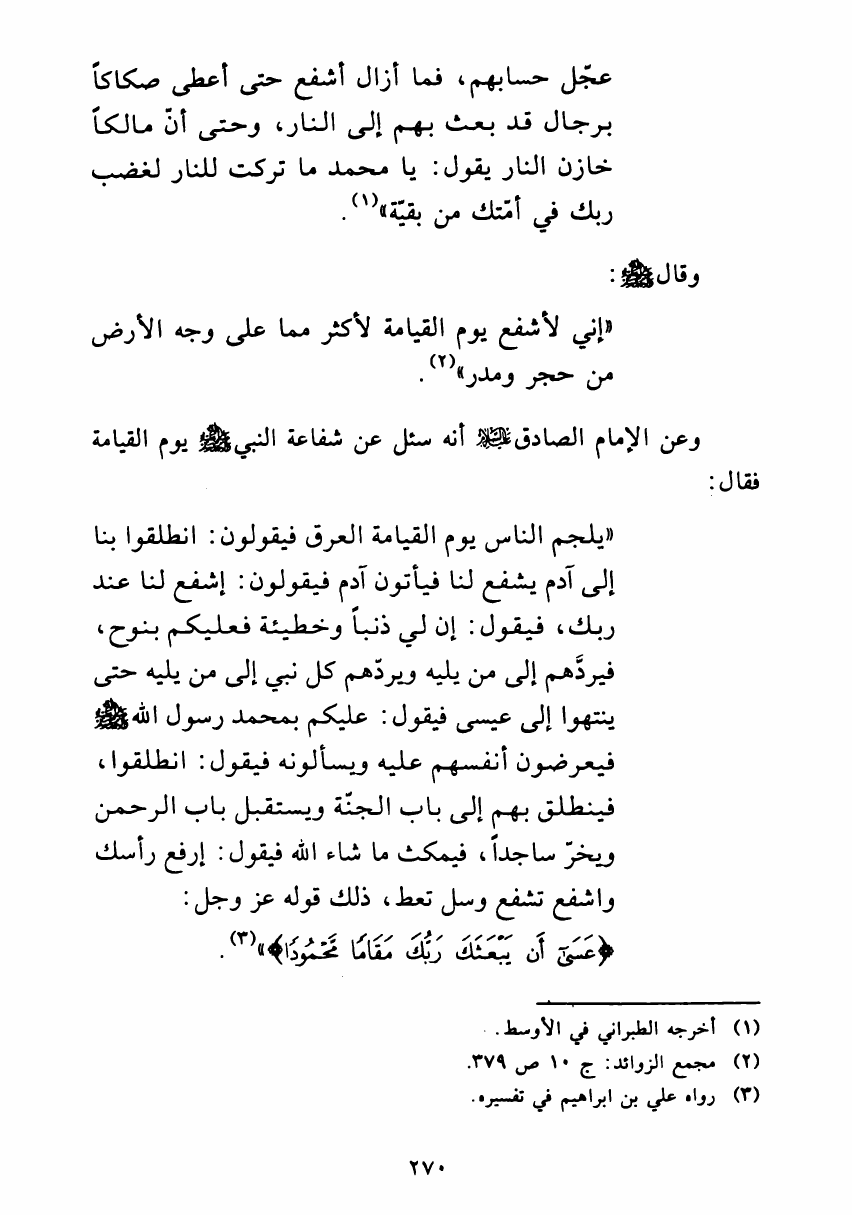 عجّل حسابهم، فما أزال أشفع حتى أعطى صكاكاً
برجال قد بعث بهم إلى النار، وحتى أنّ مالكاً
خازن النار يقول: يا محمد ما تركت للنار لغضب
ربك في أمّتك من بقيّة»(١).
وقال ﷺ:
«إني لأشفع يوم القيامة لأكثر مما على وجه الأرض
من حجر ومدر»(٢).
وعن الإمام الصادق أنه سئل عن شفاعة النبي ﷺ يوم القيامة
فقال:
«يلجم الناس يوم القيامة العرق فيقولون: انطلقوا بنا
إلى آدم يشفع لنا فيأتون آدم فيقولون: إشفع لنا عند
ربك، فيقول: إن لي ذنباً وخطيئة فعليكم بنوح،
فيردَّهم إلى من يليه ويردّهم كل نبي إلى من يليه حتى
ينتهوا إلى عيسى فيقول: عليكم بمحمد رسول الله ﷺ
فيعرضون أنفسهم عليه ويسألونه فيقول: انطلقوا،
فينطلق بهم إلى باب الجنّة ويستقبل باب الرحمن
ويخرّ ساجداً، فيمكث ما شاء الله فيقول: إرفع رأسك
واشفع تشفع وسل تعط، ذلك قوله عز وجل:
﴿عَسَىٰٓ أَن يَبْعَثَكَ رَبُّكَ مَقَامًا مَّحْمُودًا﴾»(٣).
(١) أخرجه الطبراني في الأوسط.
(٢) مجمع الزوائد: ج ١٠ ص ٣٧٩.
(٣) رواه علي بن ابراهيم في تفسيره.
٢٧٠